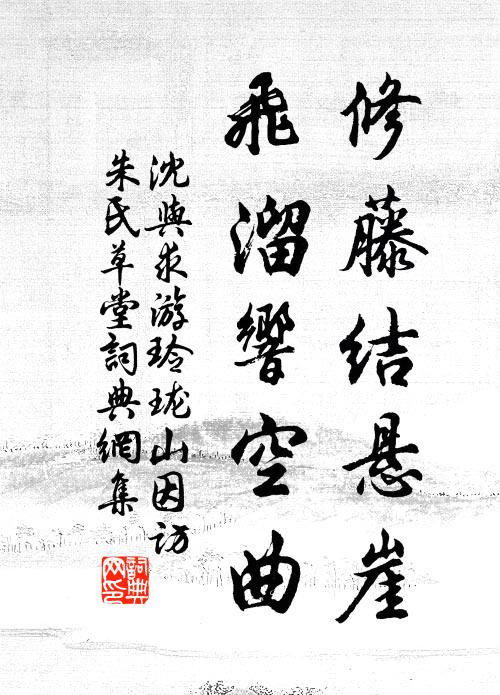 修藤结悬崖
飛溜響空曲
沈與求游玲珑山因访
朱氏草堂詞典網集
詞典网印